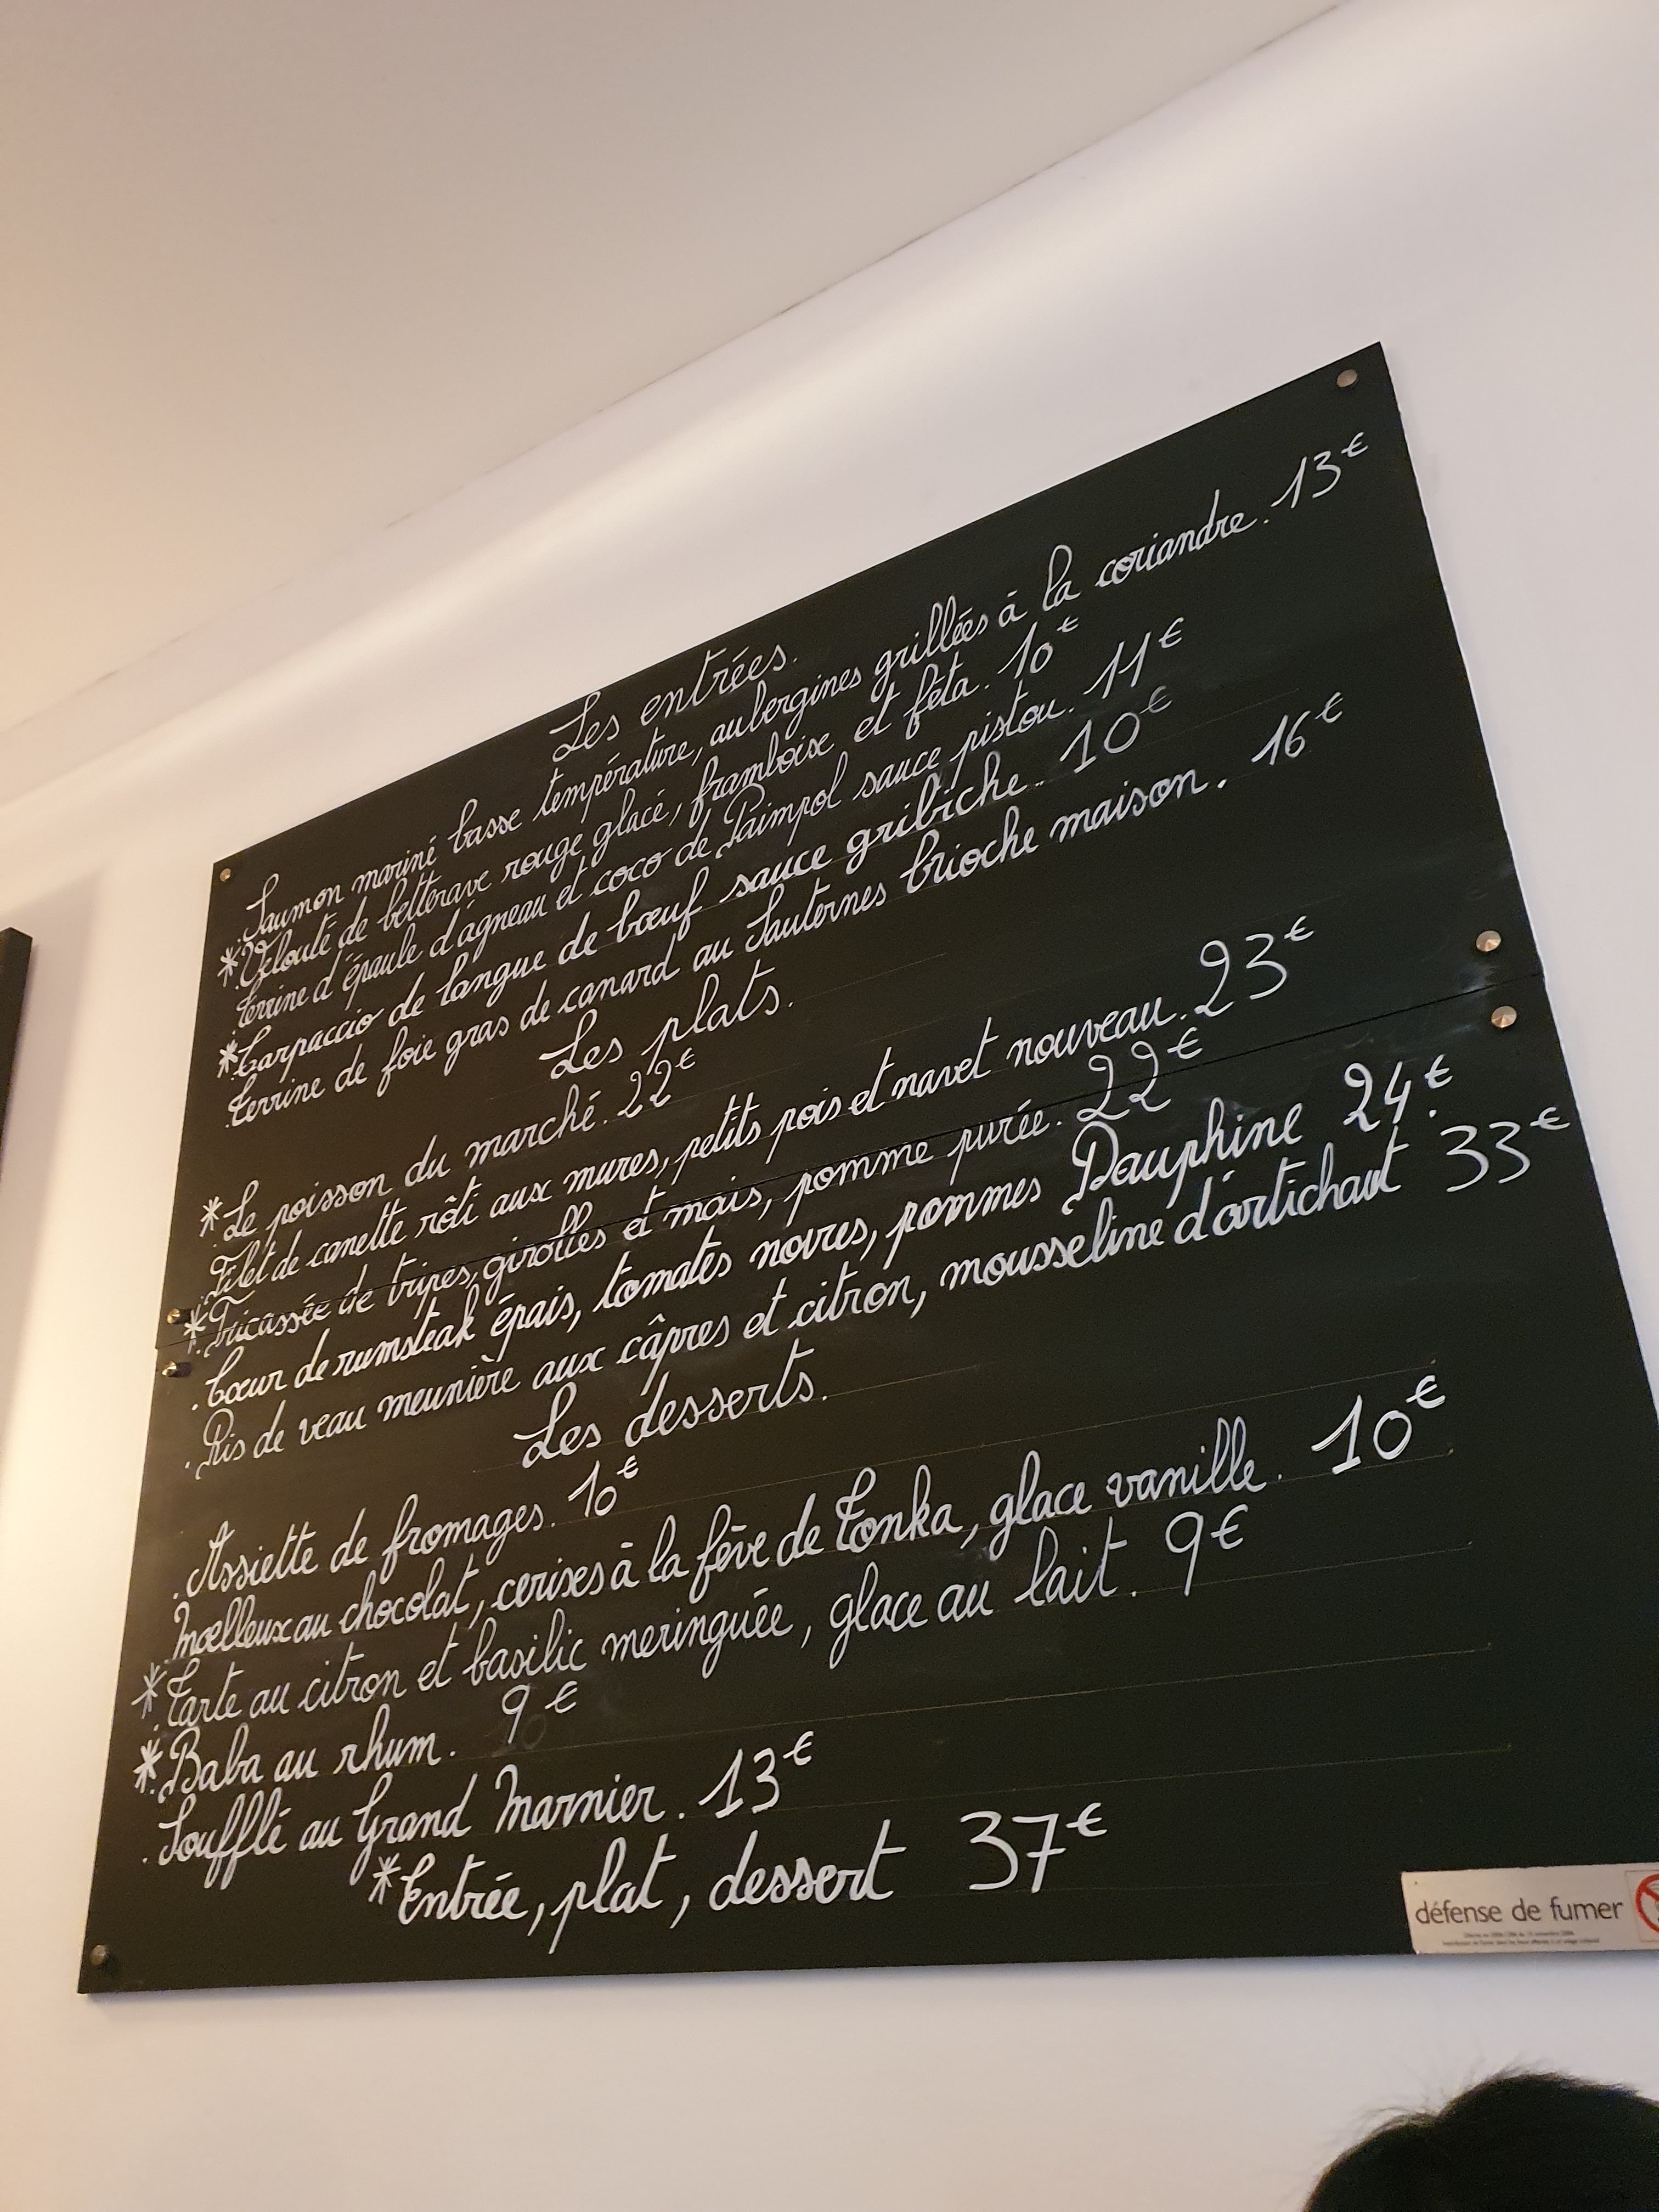 Les entrées.
. Saumon mariné basse température, aubergines grillées à la coriandre. 13€
*. Velouté de betterave rouge glacé, framboise et féta. 10€
. Terrine d'épaule d'agneau et coco de Paimpol sauce pistou. 11€
*. Carpaccio de langue de bœuf sauce gribiche. 10€
. Terrine de foie gras de canard au Sauternes brioche maison. 16€
Les plats.
*. Le poisson du marché. 22€
. Filet de canette rôti aux mures, petits pois et navet nouveau. 23€
*. Fricassée de tripes, girolles et maïs, pomme purée. 22€
. Cœur de rumsteak épais, tomates noires, pommes Dauphine 24€.
. Ris de veau meunière aux câpres et citron, mousseline d'artichaut 33€
Les desserts.
. Assiette de fromages. 10€
. Moelleux au chocolat, cerises à la fêve de Tonka, glace vanille. 10€
*. Tarte au citron et basilic meringuée, glace au lait. 9€
*. Baba au rhum. 9€
. Soufflé au Grand Marnier. 13€
*Entrée, plat, dessert 37€
défense de fumer